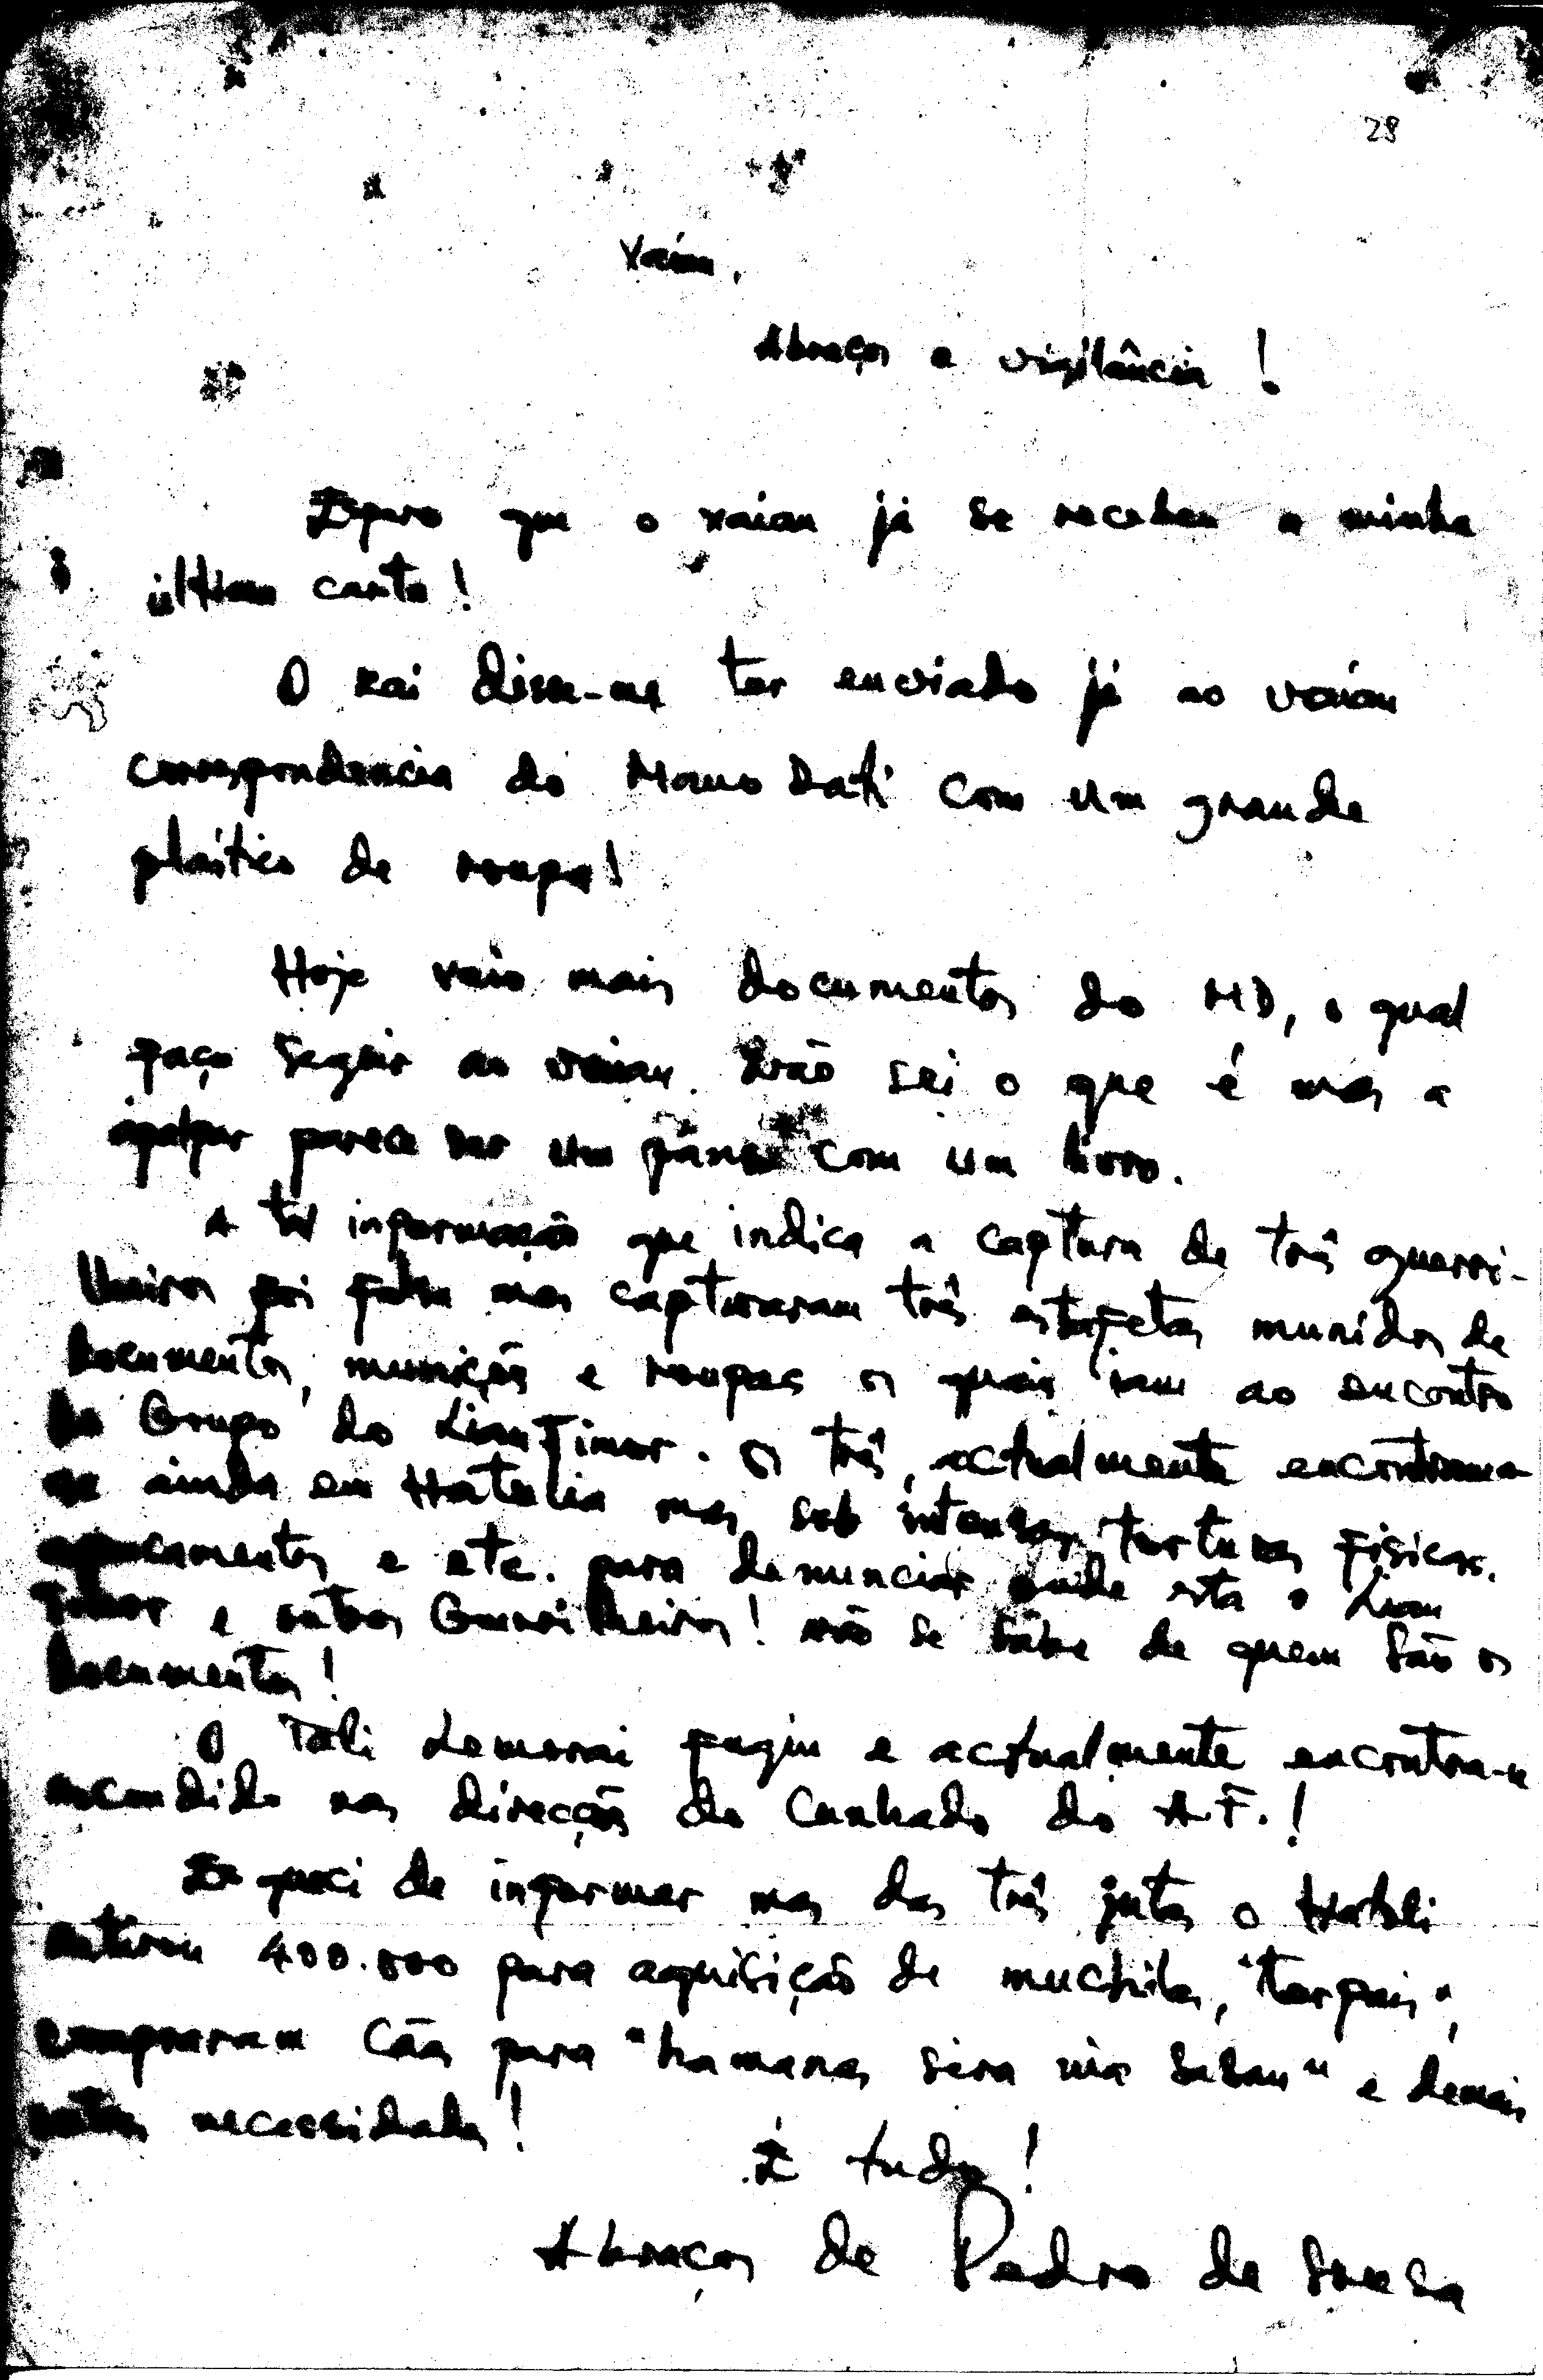 28
Vaian,
Abraços e vigilância!
Espero que o vaian já se recebeu a minha
última carta!
O Kai disse-me ter enviado já ao vaian
correspondencia do Mauo Dati com um grande
plástico de roupa!
Hoje vaio mais documentos do MD, o qual
faço seguir ao vaian. Não sei o que é mas a
apalpar parece ser um com um livro.
A tal informação que indica a captura de três guerri-
lheiros foi falsa mas capturaram três estafetas munidos de
documentos, munições e roupas os quais iam ao encontro
do Grupo do Lian Timor. Os três, actualmente encontram-
se ainda em Hatolia mas sob intensas torturas físicas.
e etc. para denunciar onde esta o Lian
Timor e outros Guerrilheiros! Não se sabe de quem são os
documentos!
O Tali Lemorai fugiu e actualmente encontra-se
escondido nas direcções do Cunhado do A.F.!
Esqueci de informar mas das três jutas o
400.000 para aquisição de muchilas, "terpais",
compraram Cãs para "hamanas sira nia Sasan" e demais
outras necessidades!
É tudo!
Abraços de Pedro de Sousa